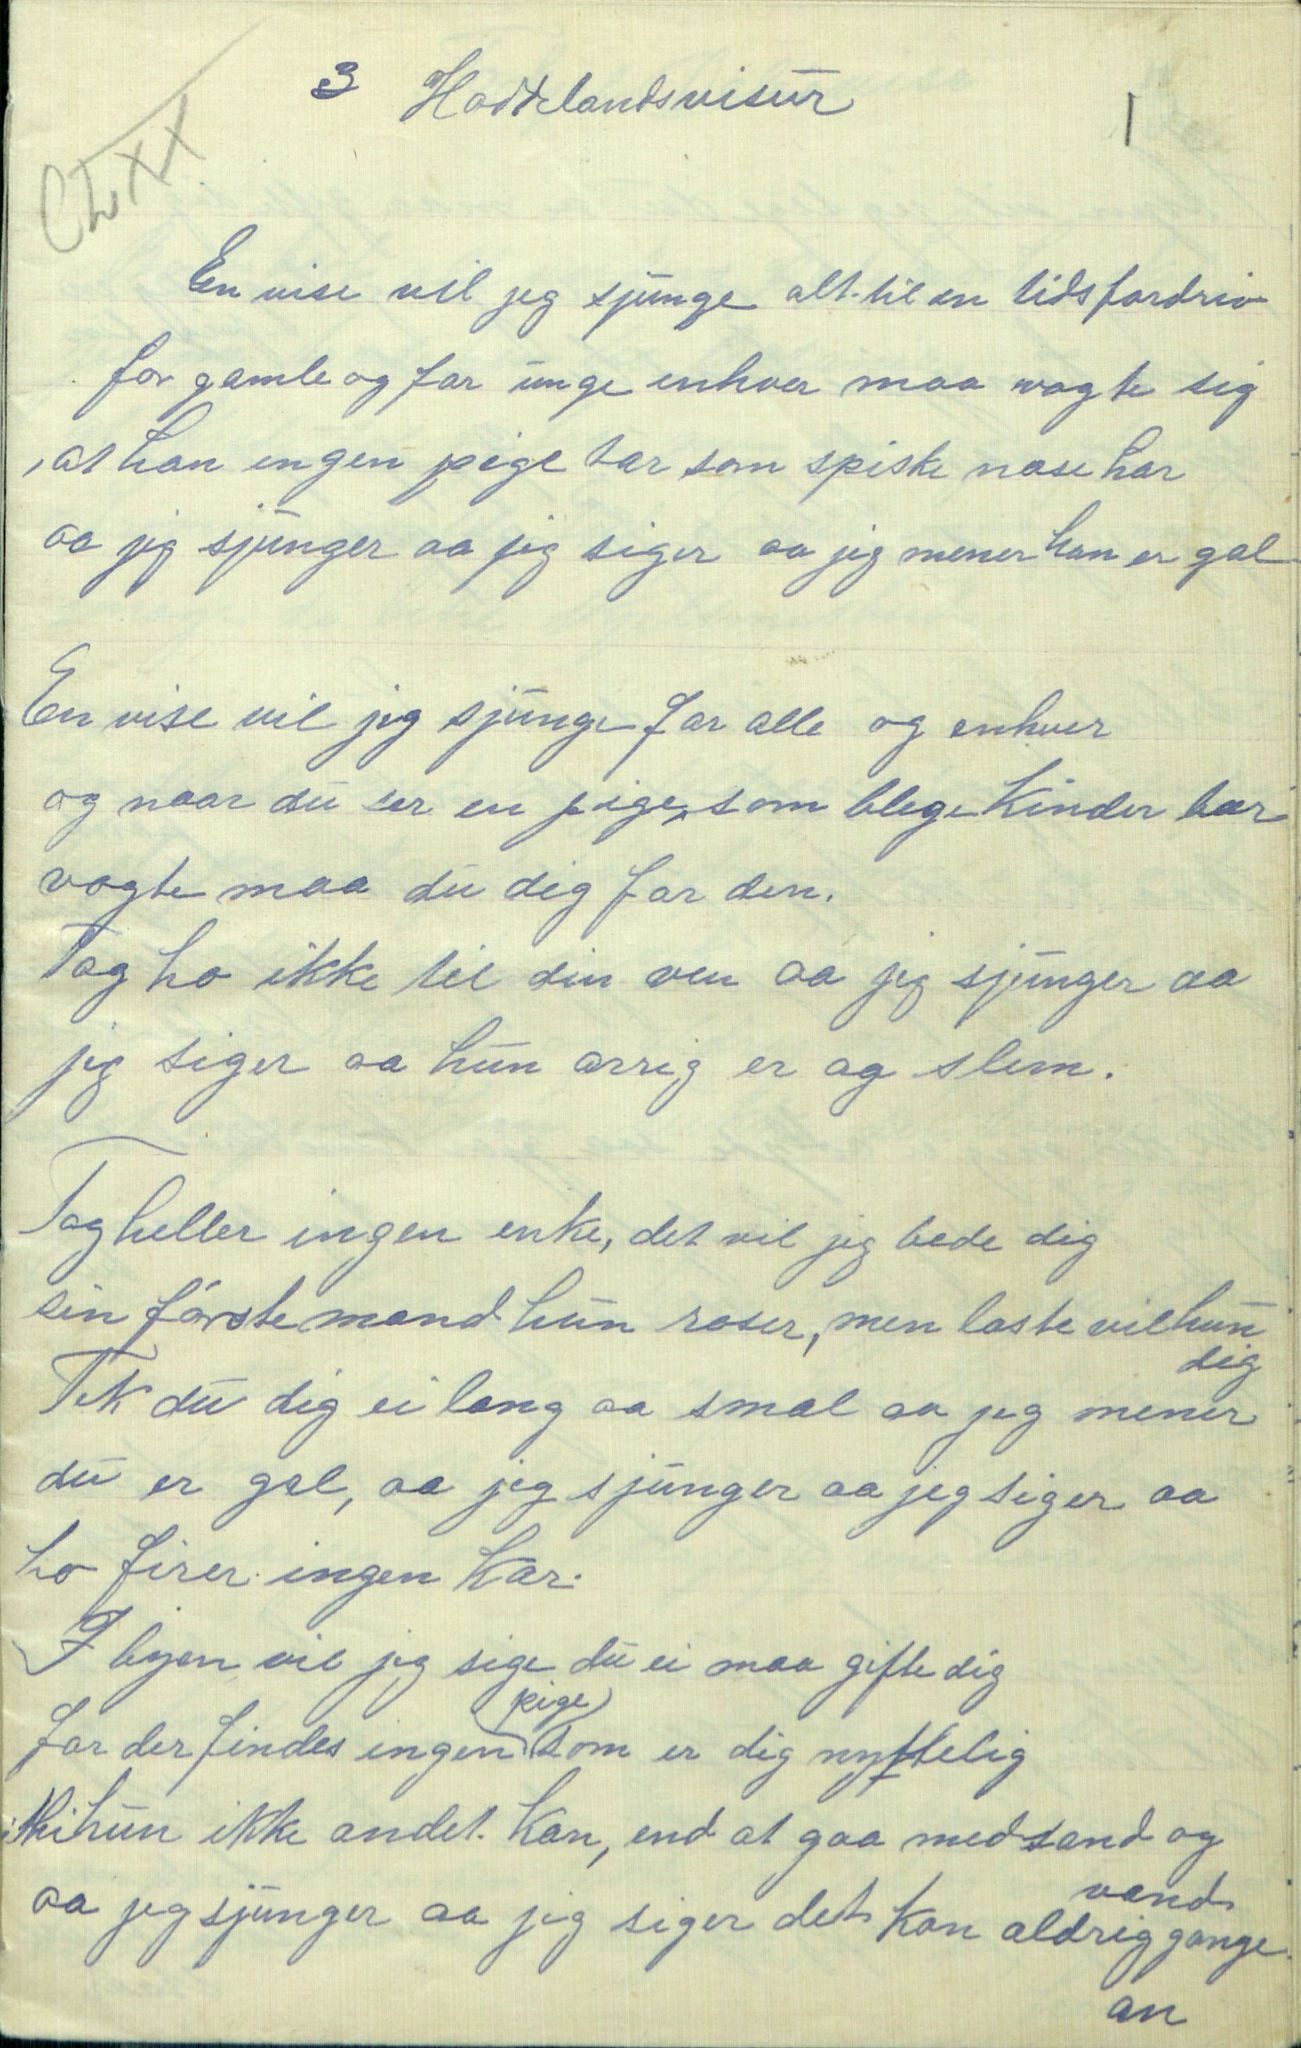 3 Hadelandsvisur
1
En vise vil jeg sjunge alt til en tidsfordriv
for gamle og for unge enhver maa vogte sig
at han ingen pige tar som spiske næse har
aa jeg sjunger aa jeg siger aa jeg mener han er gal
En vise vil jeg sjunge for alle og enhver
og naar du ser en pige, som blege kinder bær
vogte maa du dig for den.
Tag ho ikke til din ven aa jeg sjunger aa
jeg siger aa hun arrig er og slem.
Tag heller ingen enke, det vil jeg bede dig
sin første mand hun roser, men laste vil hun
dig
Tek du dig ei lang aa smal aa jeg mener
du er gal, aa jeg sjunger aa jeg siger aa
ho firer ingen kar.
I byen vil jeg sige du ei maa gifte dig
for der findes ingen pige som er dig nyttelig
thi hun ikke andet kan, end at gaa med sand og
vand
aa jeg sjunger aa jeg siger det kan aldrig gange
an